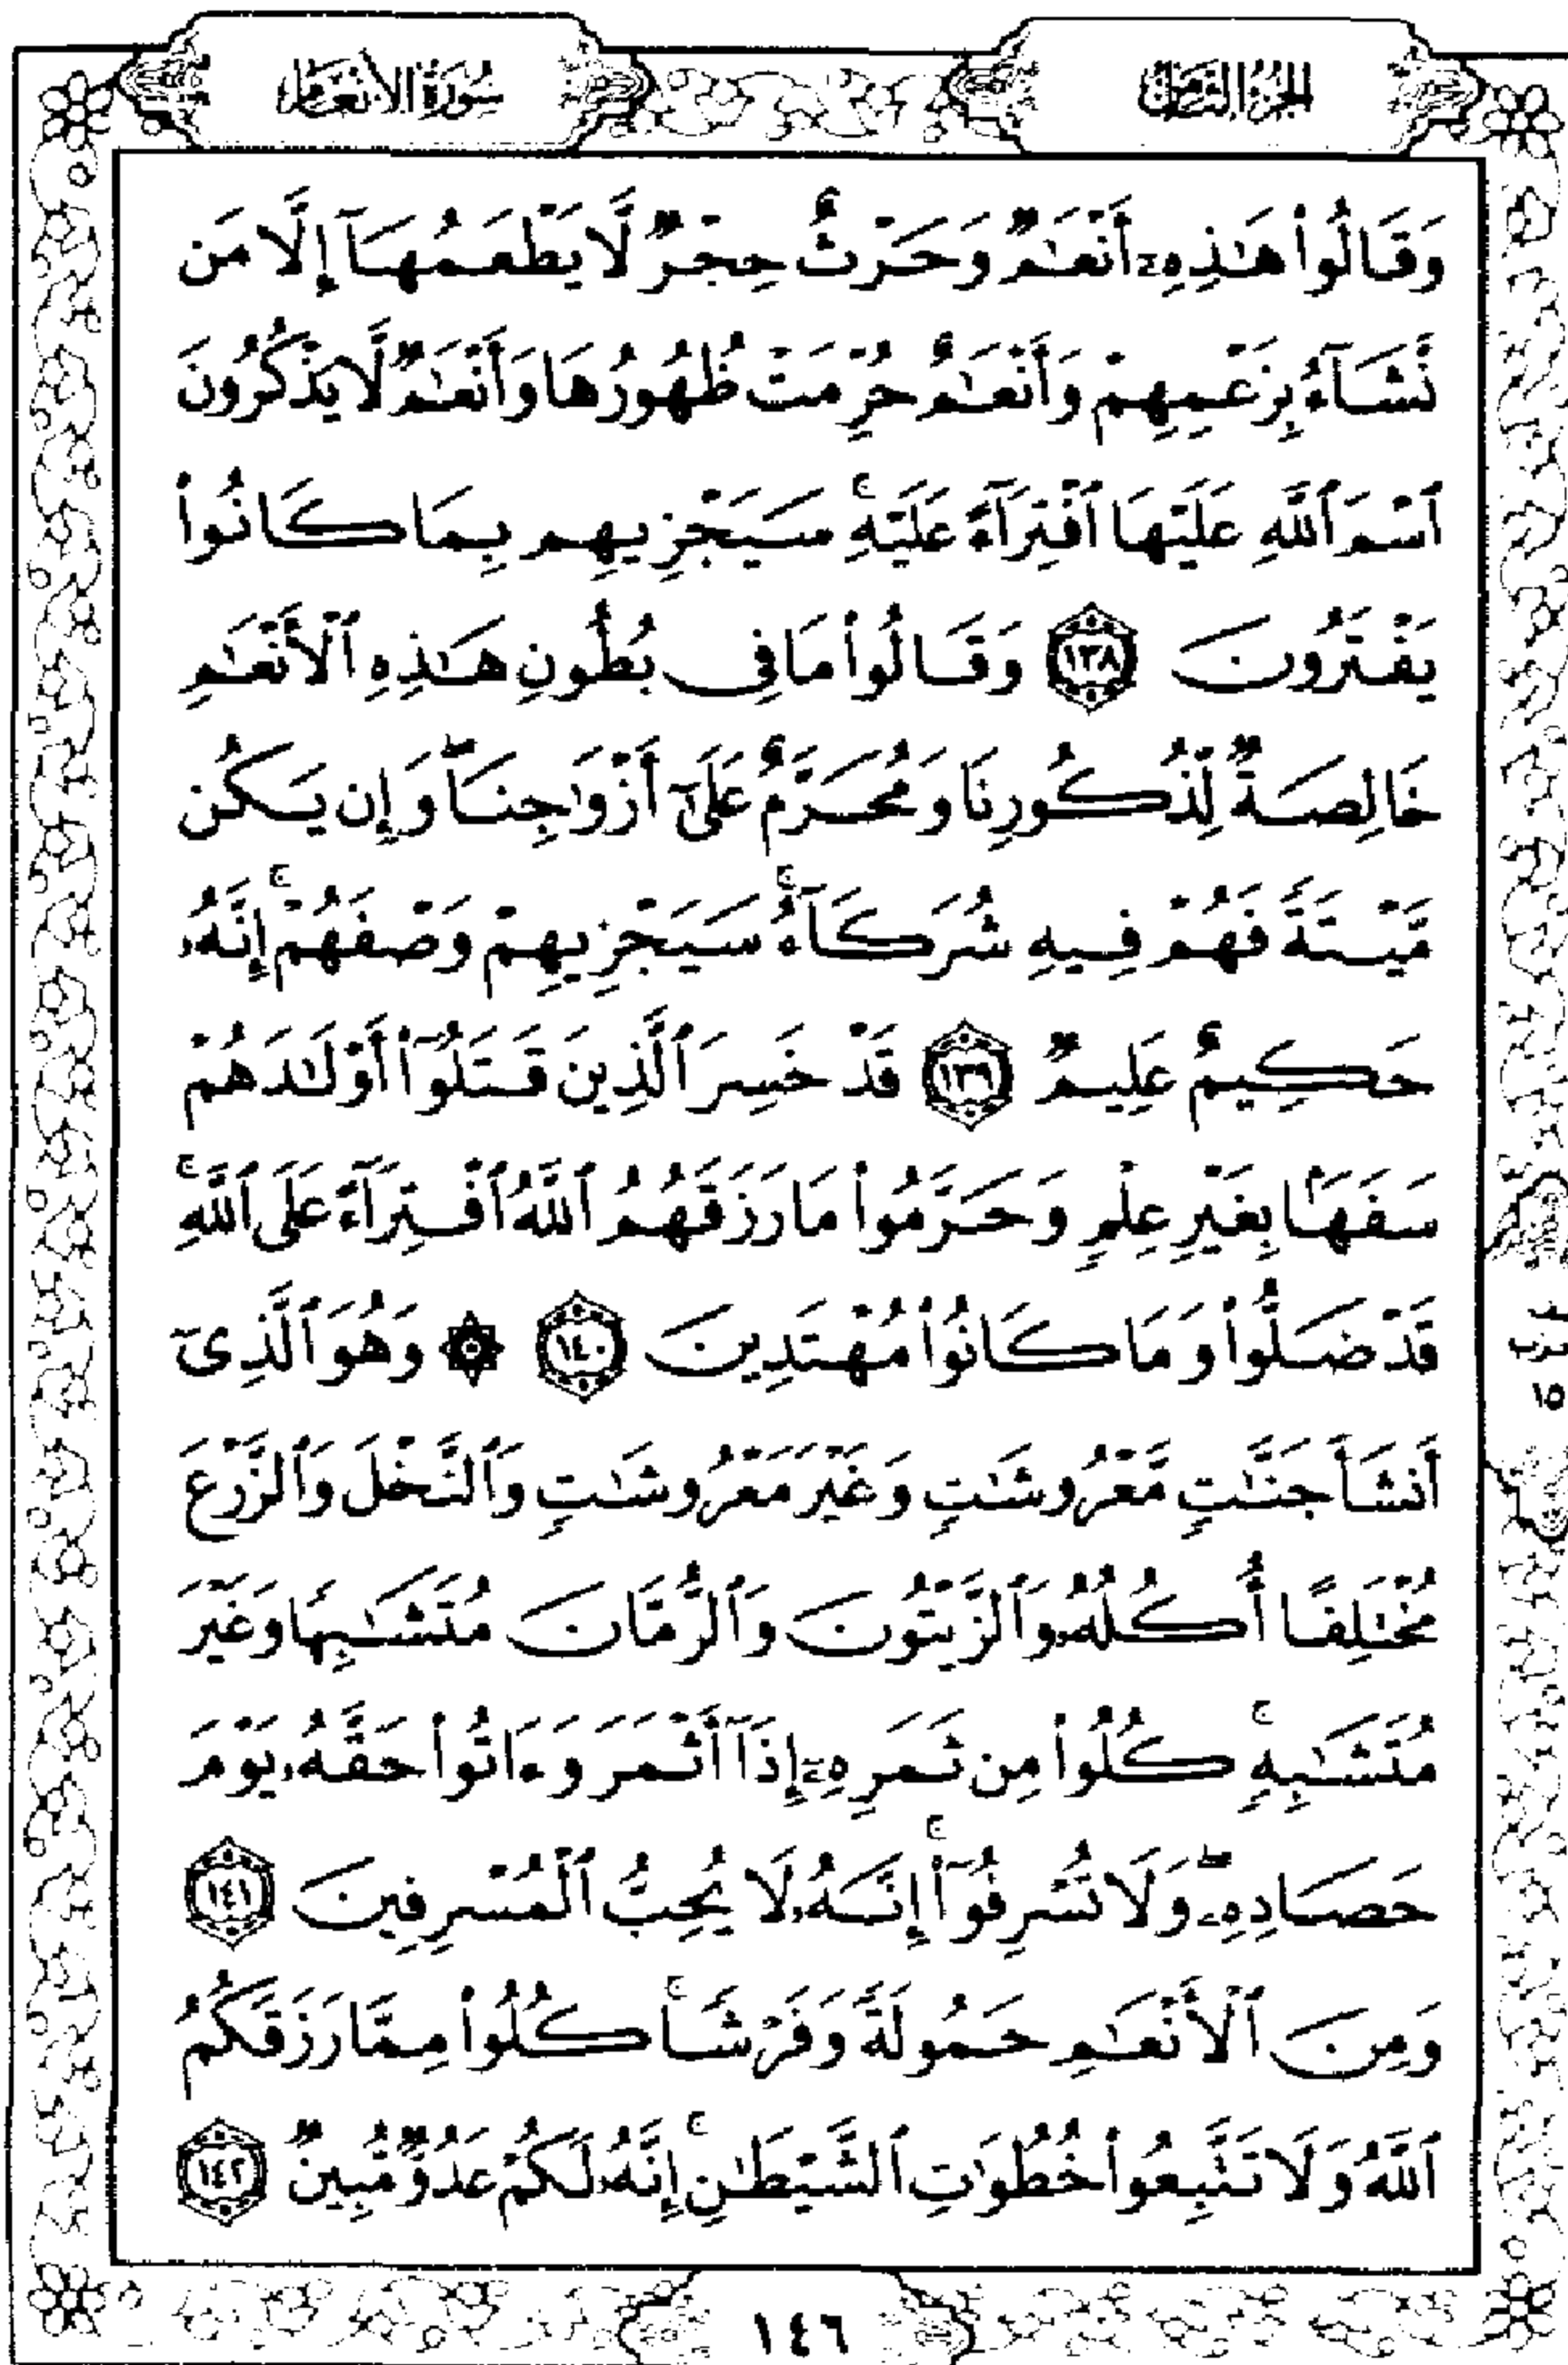 الجزء الثامن
سورة الأنعام
وَقَالُوا۟ هَـٰذِهِۦٓ أَنْعَـٰمٌ وَحَرْثٌ حِجْرٌ لَّا يَطْعَمُهَآ إِلَّا مَن
نَّشَآءُ بِزَعْمِهِمْ وَأَنْعَـٰمٌ حُرِّمَتْ ظُهُورُهَا وَأَنْعَـٰمٌ لَّا يَذْكُرُونَ
ٱسْمَ ٱللَّهِ عَلَيْهَا ٱفْتِرَآءً عَلَيْهِ ۚ سَيَجْزِيهِم بِمَا كَانُوا۟
يَفْتَرُونَ ١٣٨ وَقَالُوا۟ مَا فِى بُطُونِ هَـٰذِهِ ٱلْأَنْعَـٰمِ
خَالِصَةٌ لِّذُكُورِنَا وَمُحَرَّمٌ عَلَىٰٓ أَزْوَٰجِنَا ۖ وَإِن يَكُن
مَّيْتَةً فَهُمْ فِيهِ شُرَكَآءُ ۚ سَيَجْزِيهِمْ وَصْفَهُمْ ۚ إِنَّهُۥ
حَكِيمٌ عَلِيمٌ ١٣٩ قَدْ خَسِرَ ٱلَّذِينَ قَتَلُوٓا۟ أَوْلَـٰدَهُمْ
سَفَهًۢا بِغَيْرِ عِلْمٍ وَحَرَّمُوا۟ مَا رَزَقَهُمُ ٱللَّهُ ٱفْتِرَآءً عَلَى ٱللَّهِ ۚ
قَدْ ضَلُّوا۟ وَمَا كَانُوا۟ مُهْتَدِينَ ١٤٠ ۞ وَهُوَ ٱلَّذِىٓ
أَنشَأَ جَنَّـٰتٍ مَّعْرُوشَـٰتٍ وَغَيْرَ مَعْرُوشَـٰتٍ وَٱلنَّخْلَ وَٱلزَّرْعَ
مُخْتَلِفًا أُكُلُهُۥ وَٱلزَّيْتُونَ وَٱلرُّمَّانَ مُتَشَـٰبِهًا وَغَيْرَ
مُتَشَـٰبِهٍ ۚ كُلُوا۟ مِن ثَمَرِهِۦٓ إِذَآ أَثْمَرَ وَءَاتُوا۟ حَقَّهُۥ يَوْمَ
حَصَادِهِۦ ۖ وَلَا تُسْرِفُوٓا۟ ۚ إِنَّهُۥ لَا يُحِبُّ ٱلْمُسْرِفِينَ ١٤١
وَمِنَ ٱلْأَنْعَـٰمِ حَمُولَةً وَفَرْشًا ۚ كُلُوا۟ مِمَّا رَزَقَكُمُ
ٱللَّهُ وَلَا تَتَّبِعُوا۟ خُطُوَٰتِ ٱلشَّيْطَـٰنِ ۚ إِنَّهُۥ لَكُمْ عَدُوٌّ مُّبِينٌ ١٤٢
١٥
١٤٦